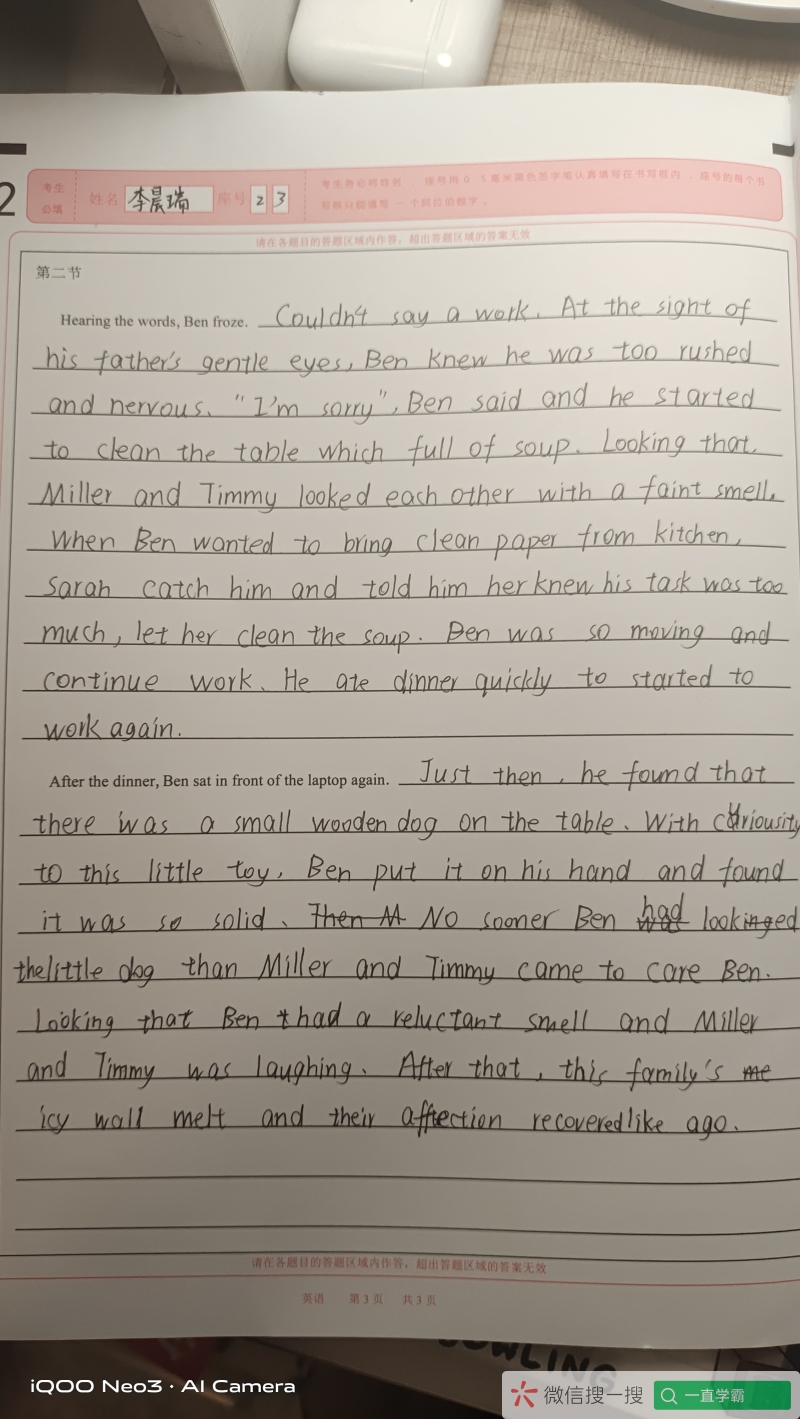 2
考生必填
姓名 李晨瑞 座号 2 3
请在各题目的答题区域内作答，超出答题区域的答案无效
第二节
Hearing the words, Ben froze. Couldn't say a work. At the sight of
his father's gentle eyes, Ben knew he was too rushed
and nervous. "I'm sorry", Ben said and he started
to clean the table which full of soup. Looking that.
Miller and Timmy looked each other with a faint smell.
When Ben wanted to bring clean paper from kitchen,
Sarah catch him and told him her knew his task was too
much, let her clean the soup. Ben was so moving and
continue work. He ate dinner quickly to started to
work again.
After the dinner, Ben sat in front of the laptop again. Just then, he found that
there was a small wooden dog on the table. With curiousity
to this little toy, Ben put it on his hand and found
it was so solid. Then M No sooner Ben had looked
the little dog than Miller and Timmy came to care Ben.
Looking that Ben had a reluctant smell and Miller
and Timmy was laughing. After that, this family's me
icy wall melt and their affection recovered like ago.
请在各题目的答题区域内作答，超出答题区域的答案无效
英语 第3页 共3页
iQOO Neo3 · AI Camera
微信搜一搜 一直学霸